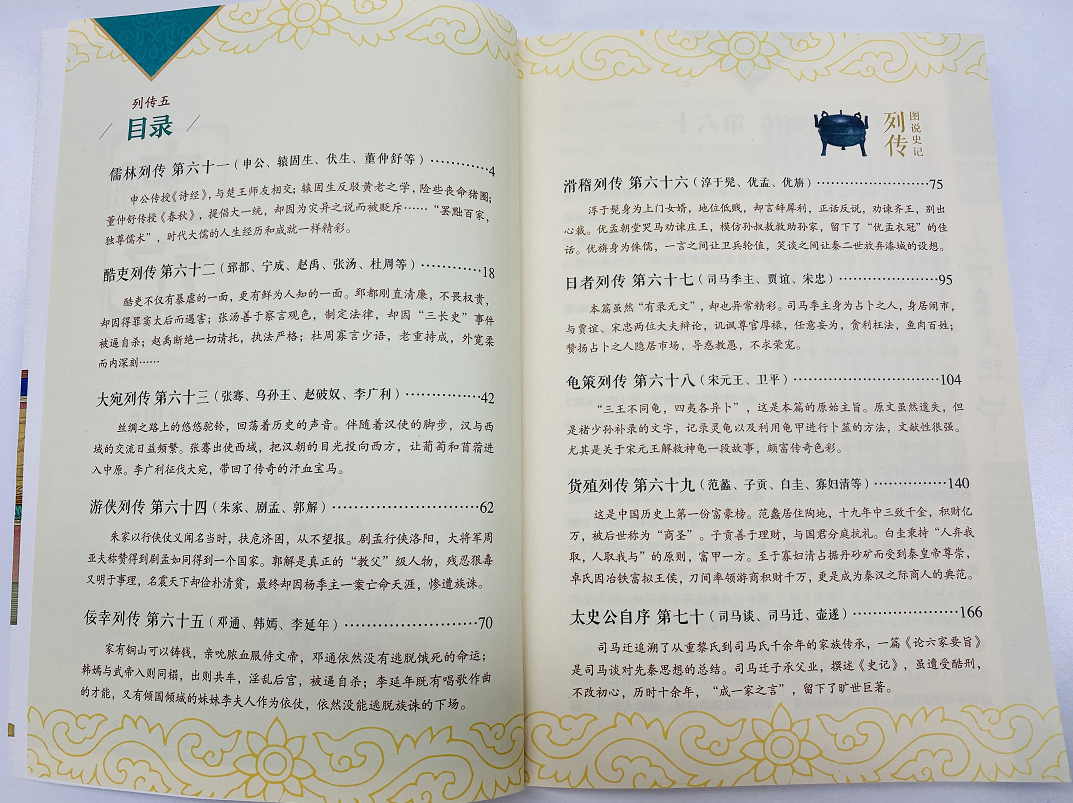 列传五
目录
儒林列传 第六十一（申公、辕固生、伏生、董仲舒等）…………4
申公传授《诗经》，与楚王师友相交；辕固生反驳黄老之学，险些丧命猪圈；
董仲舒传授《春秋》，提倡大一统，却因为灾异之说而被贬斥……“罢黜百家，
独尊儒术”，时代大儒的人生经历和成就一样精彩。
酷吏列传 第六十二（郅都、宁成、赵禹、张汤、杜周等）…………18
酷吏不仅有暴虐的一面，更有鲜为人知的一面。郅都刚直清廉，不畏权贵，
却因得罪窦太后而遇害；张汤善于察言观色，制定法律，却因“三长史”事件
被逼自杀；赵禹断绝一切请托，执法严格；杜周寡言少语，老重持成，外宽柔
而内深刻……
大宛列传 第六十三（张骞、乌孙王、赵破奴、李广利）…………42
丝绸之路上的悠悠驼铃，回荡着历史的声音。伴随着汉使的脚步，汉与西
域的交流日益频繁。张骞出使西域，把汉朝的目光投向西方，让葡萄和苜蓿进
入中原。李广利征伐大宛，带回了传奇的汗血宝马。
游侠列传 第六十四（朱家、剧孟、郭解）…………62
朱家以行侠仗义闻名当时，扶危济困，从不望报。剧孟行侠洛阳，大将军周
亚夫称赞得到剧孟如同得到一个国家。郭解是真正的“教父”级人物，残忍狠毒
又明于事理，名震天下却俭朴清贫，最终却因杨季主一案亡命天涯，惨遭族诛。
佞幸列传 第六十五（邓通、韩嫣、李延年）…………70
家有铜山可以铸钱，亲吮脓血服侍文帝，邓通依然没有逃脱饿死的命运；
韩嫣与武帝入则同榻，出则共车，淫乱后宫，被逼自杀；李延年既有唱歌作曲
的才能，又有倾国倾城的妹妹李夫人作为依仗，依然没能逃脱族诛的下场。
图说史记
列传
滑稽列传 第六十六（淳于髡、优孟、优旃）…………75
淳于髡身为上门女婿，地位低贱，却言辞犀利，正话反说，劝谏齐王，别出
心裁。优孟朝堂哭马劝谏庄王，模仿孙叔敖救助孙家，留下了“优孟衣冠”的佳
话。优旃身为侏儒，一言之间让卫兵轮值，笑谈之间让秦二世放弃漆城的设想。
日者列传 第六十七（司马季主、贾谊、宋忠）…………95
本篇虽然“有录无文”，却也异常精彩。司马季主身为占卜之人，身居闹市，
与贾谊、宋忠两位大夫辩论，讥讽尊官厚禄，任意妄为，贪利枉法，鱼肉百姓；
赞扬占卜之人隐居市场，导惑教愚，不求荣宠。
龟策列传 第六十八（宋元王、卫平）…………104
“三王不同龟，四夷各异卜”，这是本篇的原始主旨。原文虽然遗失，但
是褚少孙补录的文字，记录灵龟以及利用龟甲进行卜筮的方法，文献性很强。
尤其是关于宋元王解救神龟一段故事，颇富传奇色彩。
货殖列传 第六十九（范蠡、子贡、白圭、寡妇清等）…………140
这是中国历史上第一份富豪榜。范蠡居住陶地，十九年中三致千金，积财亿
万，被后世称为“商圣”。子贡善于理财，与国君分庭抗礼。白圭秉持“人弃我
取，人取我与”的原则，富甲一方。至于寡妇清占据丹砂矿而受到秦皇帝尊崇，
卓氏因冶铁富拟王侯，刀间率领游商积财千万，更是成为秦汉之际商人的典范。
太史公自序 第七十（司马谈、司马迁、壶遂）…………166
司马迁追溯了从重黎氏到司马氏千余年的家族传承，一篇《论六家要旨》
是司马谈对先秦思想的总结。司马迁子承父业，撰述《史记》，虽遭受酷刑，
不改初心，历时十余年，“成一家之言”，留下了旷世巨著。